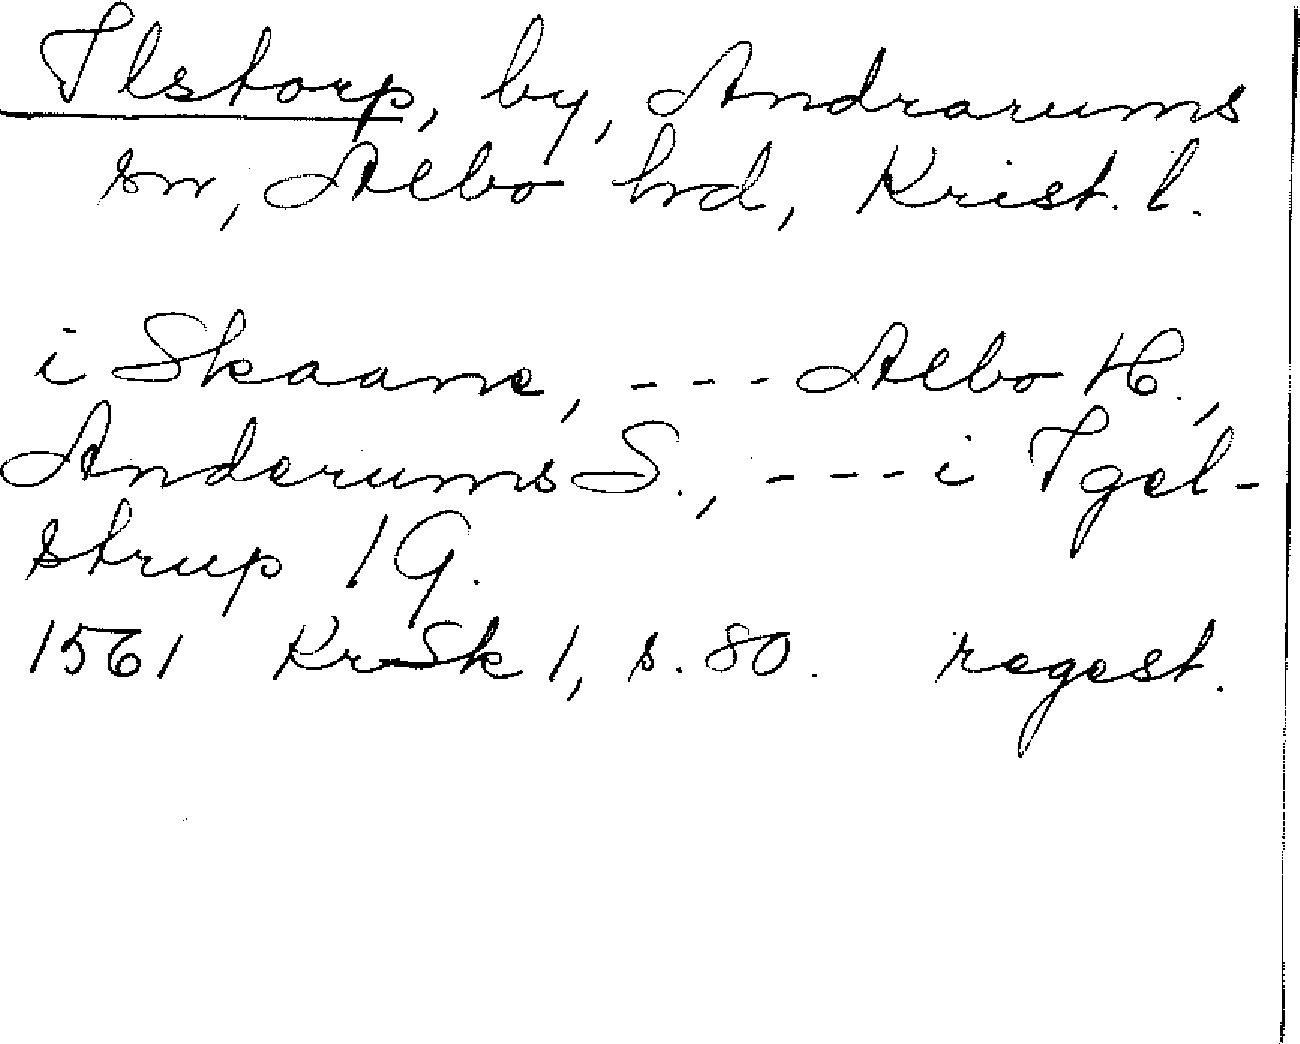 Ilstorp, by, Andrarums
sn, Albo hrd, Krist. l.
i Skaane, --- Albo H.,
Anderums S., --- i Igel-
strup 1 G.
1561 KrSk 1, s. 80. regest.